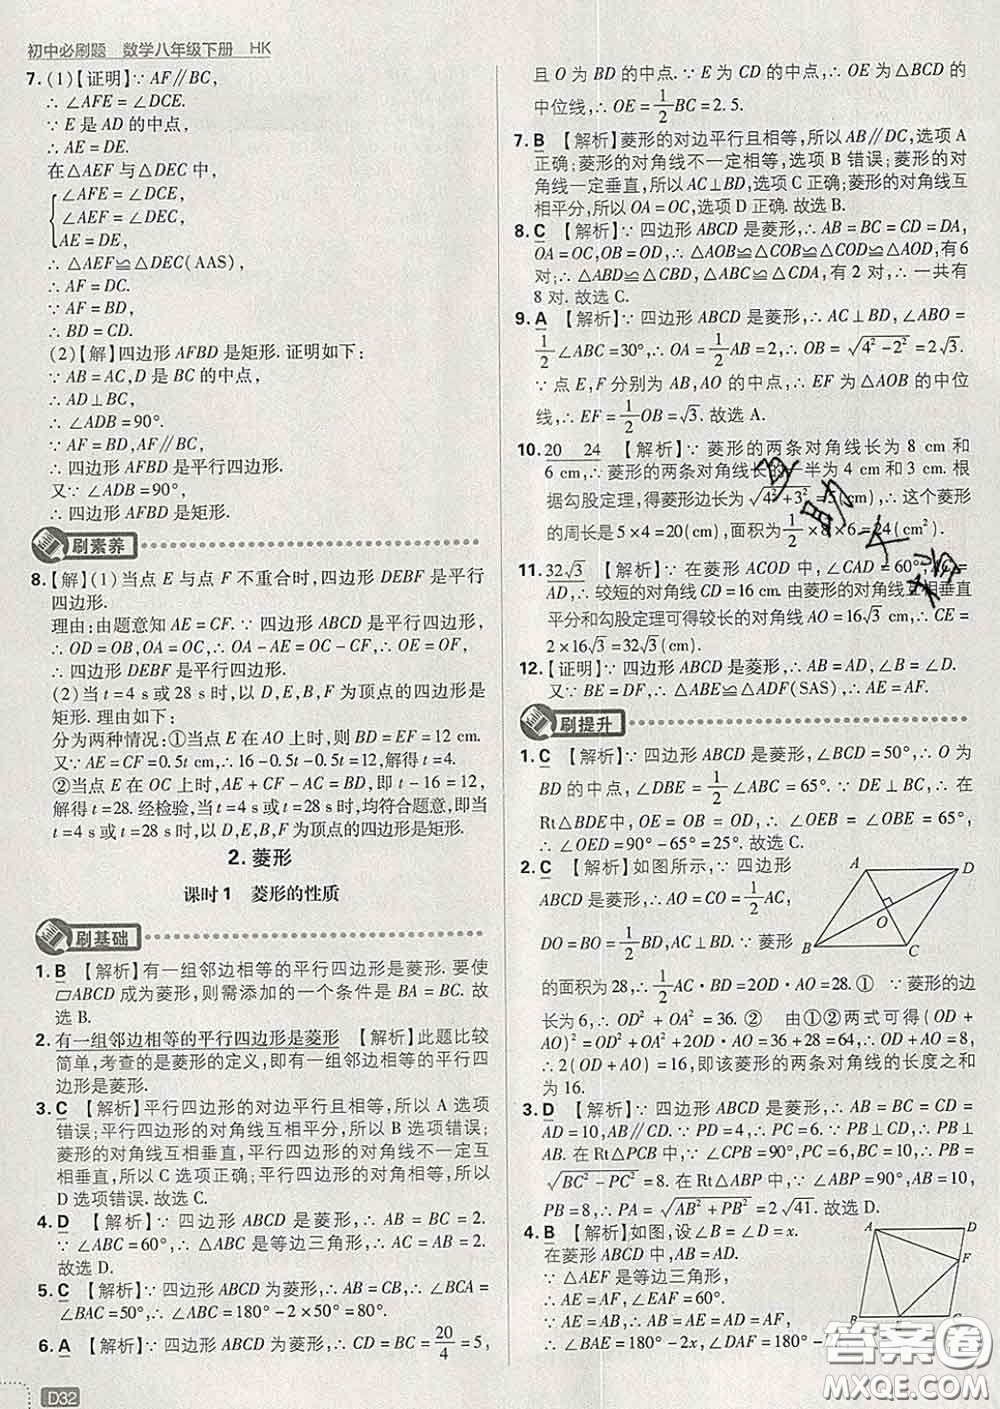 初中必刷题 数学八年级下册 HK
7. (1)【证明】∵ AF∥BC,
∴ ∠AFE=∠DCE.
∵ E 是 AD 的中点,
∴ AE=DE.
在△AEF 与△DEC 中,
∠AFE=∠DCE,
∠AEF=∠DEC,
AE=DE,
∴ △AEF≌△DEC(AAS),
∴ AF=DC.
∵ AF=BD,
∴ BD=CD.
(2)【解】四边形 AFBD 是矩形. 证明如下:
∵ AB=AC,D 是 BC 的中点,
∴ AD⊥BC,
∴ ∠ADB=90°.
∵ AF=BD,AF∥BC,
∴ 四边形 AFBD 是平行四边形.
又∵ ∠ADB=90°,
∴ 四边形 AFBD 是矩形.
刷素养
8.【解】(1)当点 E 与点 F 不重合时,四边形 DEBF 是平行
四边形.
理由:由题意知 AE=CF. ∵ 四边形 ABCD 是平行四边形,
∴ OD=OB,OA=OC,∴ OA-AE=OC-CF,∴ OE=OF,
∴ 四边形 DEBF 是平行四边形.
(2)当 t=4 s 或 28 s 时,以 D,E,B,F 为顶点的四边形是
矩形. 理由如下:
分为两种情况:①当点 E 在 AO 上时,BD=EF=12 cm.
又∵ AE=CF=0.5t cm,∴ 16-0.5t-0.5t=12,解得 t=4.
②当点 E 在 OC 上时,AE+CF-AC=BD,即 t-16=12,
解得 t=28. 经检验,当 t=4 s 或 t=28 s 时,均符合题意,即当
t=4 s 或 t=28 s 时,以 D,E,B,F 为顶点的四边形是矩形.
2. 菱形
课时 1 菱形的性质
刷基础
1. B 【解析】有一组邻边相等的平行四边形是菱形. 要使
▱ABCD 成为菱形,则需添加的一个条件是 BA=BC. 故
选 B.
2. 有一组邻边相等的平行四边形是菱形 【解析】此题比较
简单,考查的是菱形的定义,即有一组邻边相等的平行四
边形是菱形.
3. C 【解析】平行四边形的对边平行且相等,所以 A 选项
错误;平行四边形的对角线互相平分,所以 B 选项错误;
菱形的对角线互相垂直,平行四边形的对角线不一定互
相垂直,所以 C 选项正确;平行四边形的对角相等,所以
D 选项错误. 故选 C.
4. D 【解析】∵ 四边形 ABCD 是菱形,∴ AB=BC=4.
∵ ∠ABC=60°,∴ △ABC 是等边三角形,∴ AC=AB=4.
故选 D.
5. C 【解析】∵ 四边形 ABCD 为菱形,∴ AB=CB,∴ ∠BCA=
∠BAC=50°,∴ ∠ABC=180°-2×50°=80°. 故选 C.
6. A 【解析】∵ 四边形 ABCD 为菱形,∴ CD=BC=20/4=5,
D32
且 O 为 BD 的中点. ∵ E 为 CD 的中点,∴ OE 为△BCD 的
中位线,∴ OE=1/2BC=2.5.
7. B 【解析】菱形的对边平行且相等,所以 AB∥DC,选项 A
正确;菱形的对角线不一定相等,选项 B 错误;菱形的对
角线一定垂直,所以 AC⊥BD,选项 C 正确;菱形的对角线互
相平分,所以 OA=OC,选项 D 正确. 故选 B.
8. C 【解析】∵ 四边形 ABCD 是菱形,∴ AB=BC=CD=DA,
OA=OC,OB=OD,∴ △AOB≌△COB≌△COD≌△AOD,有 6
对;∴ △ABD≌△CBD,△ABC≌△CDA,有 2 对,∴ 一共有
8 对. 故选 C.
9. A 【解析】∵ 四边形 ABCD 是菱形,∴ AC⊥BD,∠ABO=
1/2∠ABC=30°,∴ OA=1/2AB=2,∴ OB=√(4²-2²)=2√3.
∵ 点 E,F 分别为 AB,AO 的中点,∴ EF 为△AOB 的中位
线,∴ EF=1/2OB=√3. 故选 A.
10. 20 24 【解析】∵ 菱形的两条对角线长为 8 cm 和
6 cm,∴ 菱形的两条对角线长的一半为 4 cm 和 3 cm. 根
据勾股定理,得菱形边长为√(4²+3²)=5(cm),∴ 这个菱形
的周长是 5×4=20(cm),面积为1/2×8×6=24(cm²).
11. 32√3 【解析】∵ 在菱形 ACOD 中,∠CAD=60°,AC=
AD,∴ 较短的对角线 CD=16 cm. 由菱形的对角线互相垂直
平分和勾股定理可得较长的对角线 AO=16√3 cm,∴ CE=
2×16√3=32√3(cm).
12.【证明】∵ 四边形 ABCD 是菱形,∴ AB=AD,∠B=∠D.
又∵ BE=DF,∴ △ABE≌△ADF(SAS),∴ AE=AF.
刷提升
1. C 【解析】∵ 四边形 ABCD 是菱形,∠BCD=50°,∴ O 为
BD 的中点,∠DBE=1/2∠ABC=65°. ∵ DE⊥BC,∴ 在
Rt△BDE中,OE=OB=OD,∴ ∠OEB=∠OBE=65°,
∴ ∠OED=90°-65°=25°. 故选 C.
2. C 【解析】如图所示,∵ 四边形
ABCD 是菱形,∴ AO=CO=1/2AC,
DO=BO=1/2BD. ∵ 菱形
的面积为 28,∴ 1/2AC·BD=2OD·AO=28. ① ∵ 菱形的边
长为 6,∴ OD²+OA²=36. ② 由①②两式可得(OD+
AO)²=OD²+OA²+2OD·AO=36+28=64,∴ OD+AO=8,
∴ 2(OD+AO)=16,即该菱形的两条对角线的长度之和
为 16.
A
D
O
B
C
3. D 【解析】∵ 四边形 ABCD 是菱形,∴ AB=BC=CD=
AD=10,AB∥CD. ∵ PD=4,∴ PC=6. ∵ PB⊥CD,∴ PB⊥
AB. 在 Rt△PCB 中,∵ ∠CPB=90°,PC=6,BC=10,∴ PB=
√(BC²-PC²)=8. 在 Rt△ABP 中,∵ ∠ABP=90°,AB=10,
PB=8,∴ PA=√(AB²+PB²)=2√41. 故选 D.
4. B 【解析】如图,设∠B=∠D=x.
在菱形 ABCD 中,AB=AD.
∵ △AEF 是等边三角形,
∴ AE=AF,∠EAF=60°.
∴ AB=AE=AF=AD,
∴ ∠BAE=180°-2x,∠DAF=180°
A
D
F
B
C
答案圈
MXQE.COM